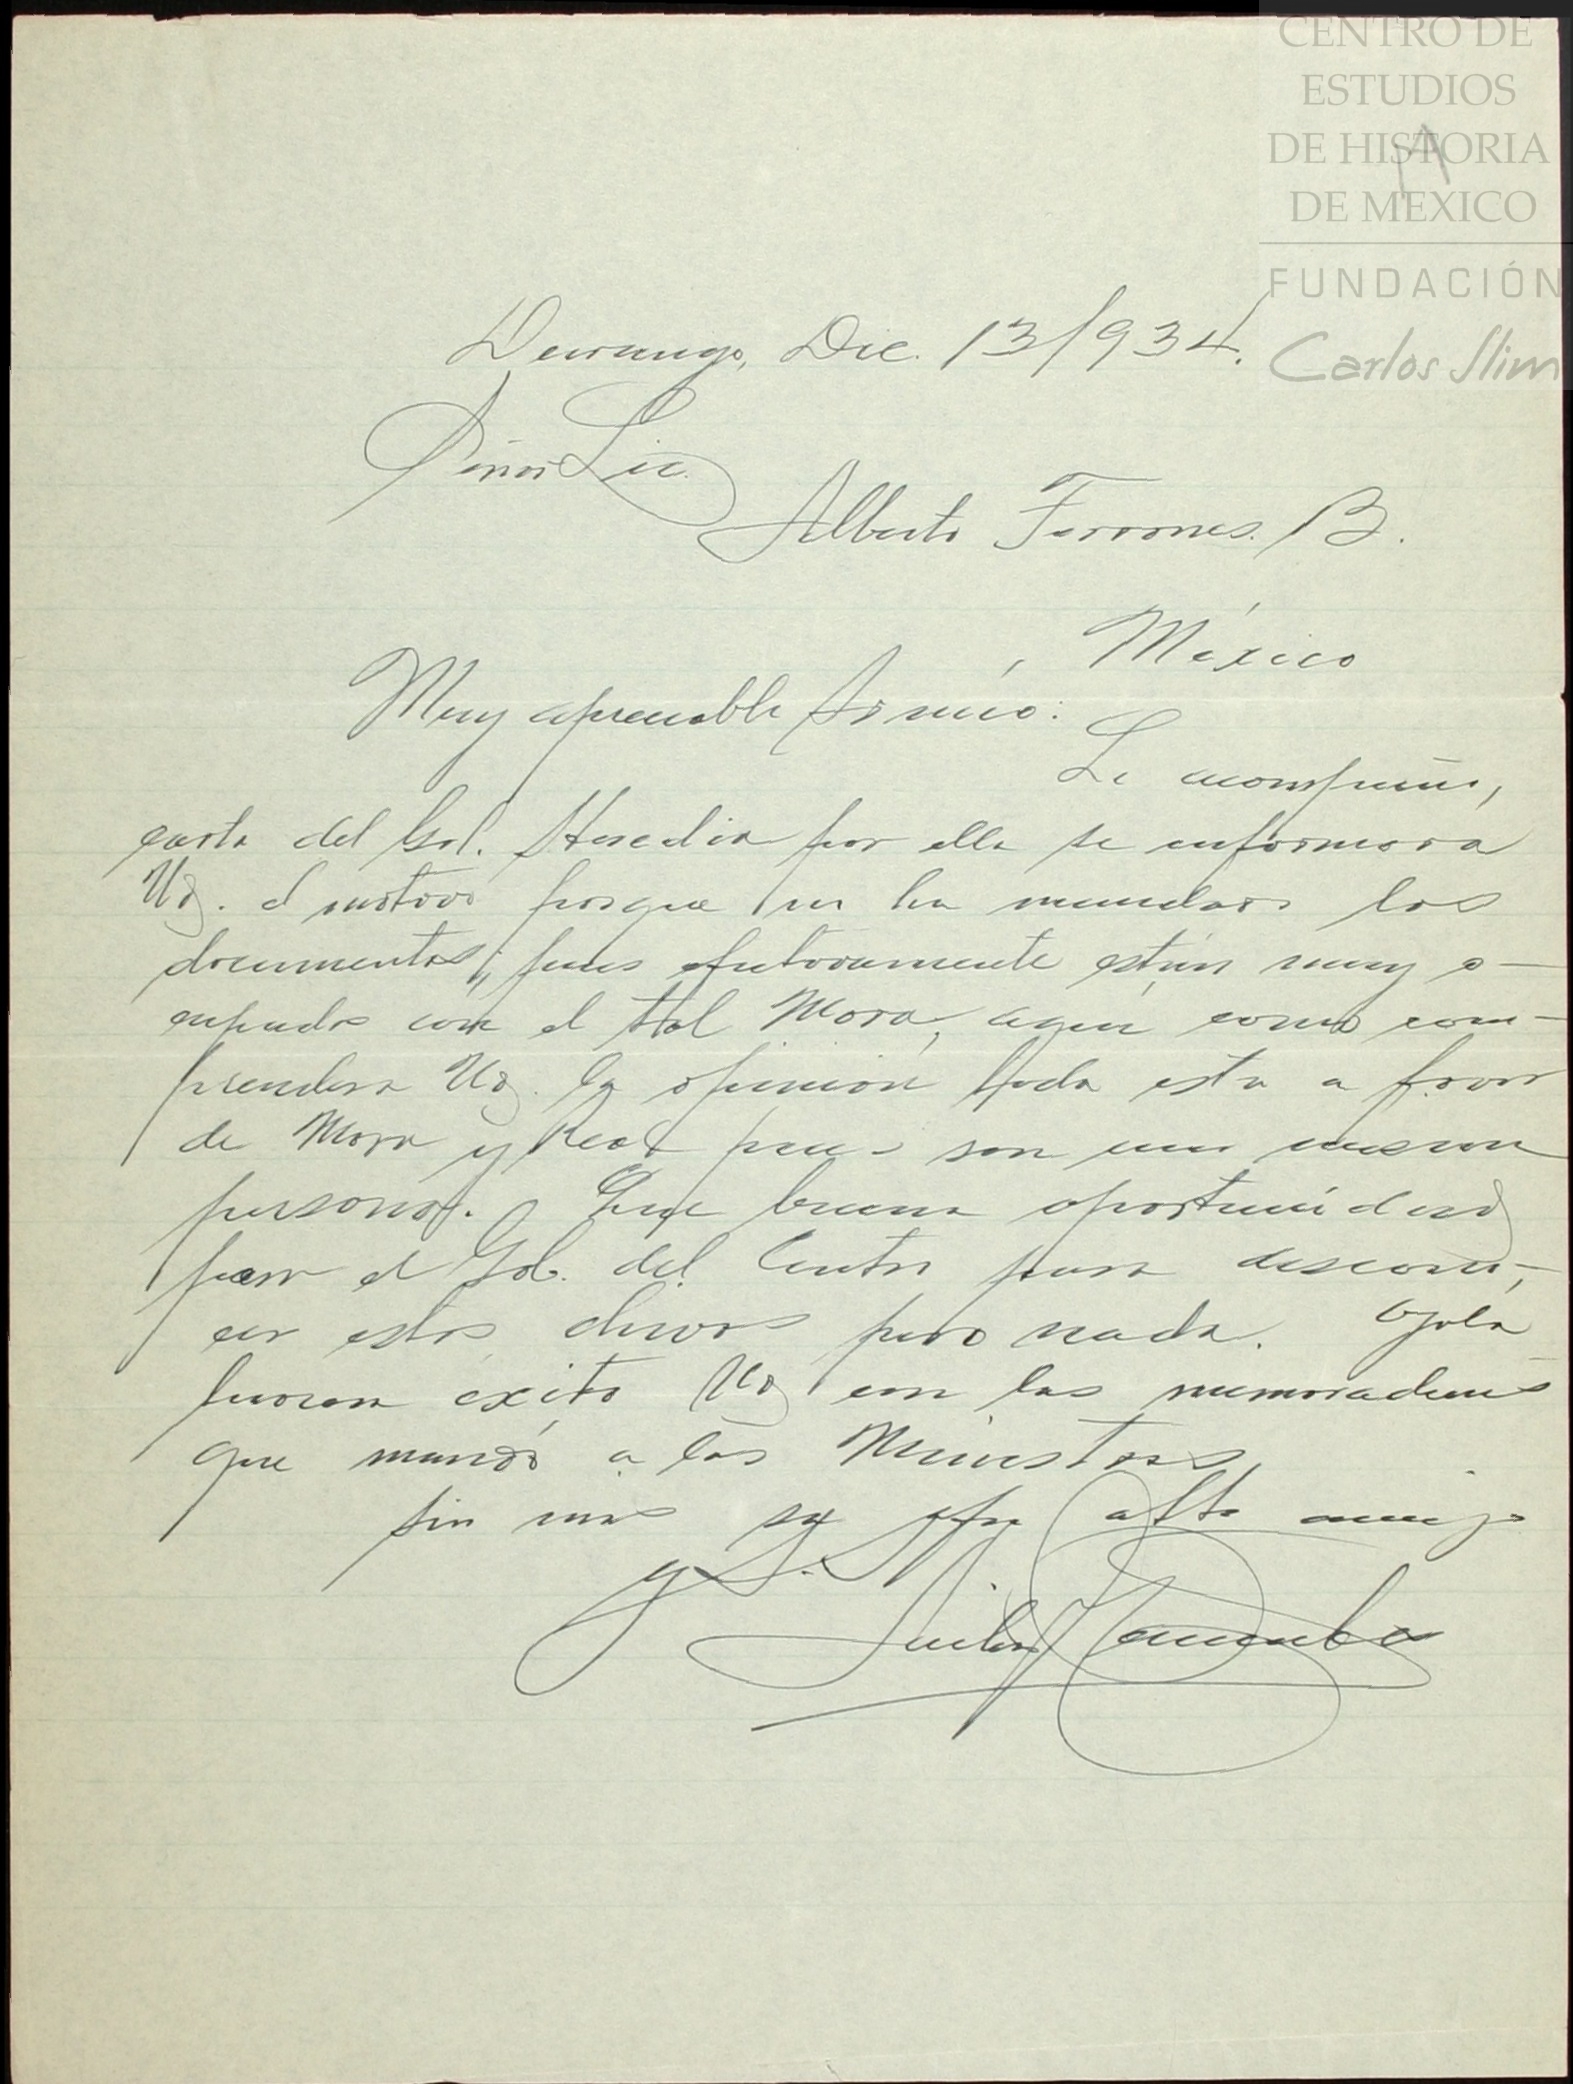 CENTRO DE
ESTUDIOS
DE HISTORIA
DE MEXICO
FUNDACIÓN
Carlos Slim
Durango, Dic. 13/934.
Señor Lic.
Alberto Terrones. B.
México
Muy apreciable Sr mío:
Le acompaño,
carta del Gral. Heredia por ella se informara
Ud. el motivo porque no ha mandado los
documentos, pues efectivamente están muy o-
cupados con el Mora, aquí como com-
prendera Ud. la opinión toda esta a favor
de Mora y Real pues son una misma
persona. Que buena oportunidad
para el Gob. del Centro para desconó-
cer estos pero nada. Ojala
tuviera éxito Ud con las memoradums
que mandó a los Ministros.
Sin más su afmo atto amigo
y S. S.